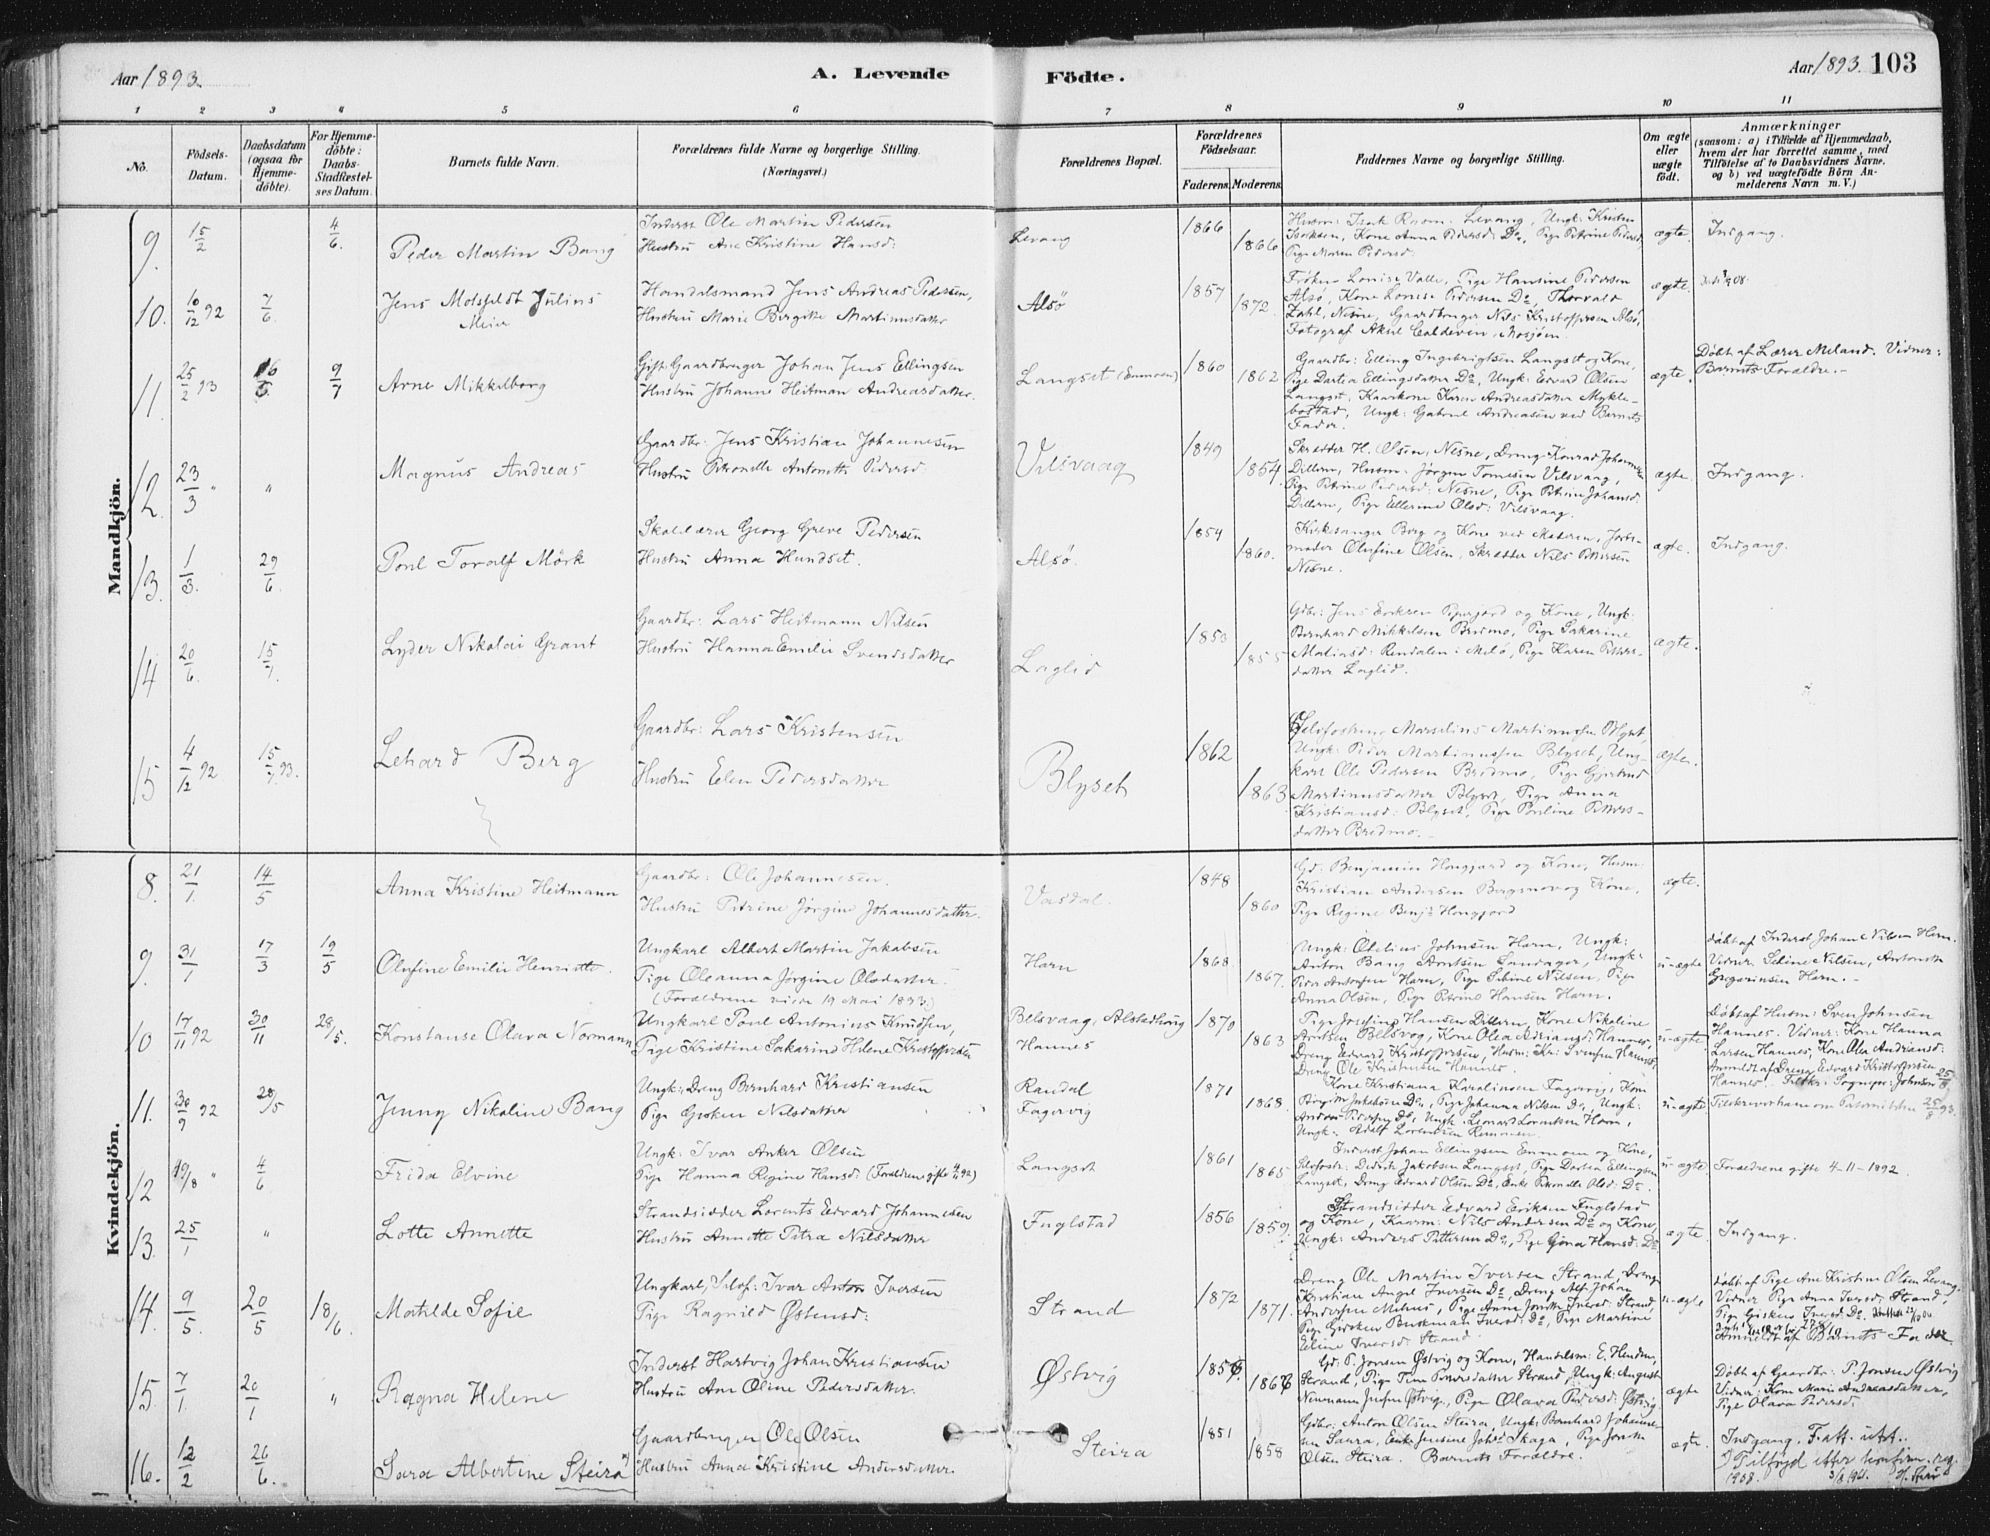 Aar 1893.
A. Levende
Födte.
Aar 1893. 103
1 2 3 4 5 6 7 8 9 10 11
No.
Födsels-
Datum.
Daabsdatum
(ogsaa for
Hjemme-
döbte).
For Hjemme-
döbte:
Daabs-
Stadfæstel-
ses Datum.
Barnets fulde Navn.
Forældrenes fulde Navne og borgerlige Stilling.
(Næringsvei.)
Forældrenes Bopæl.
Forældrenes
Födselsaar.
Faderens. Moderens.
Faddernes Navne og borgerlige Stilling.
Om ægte
eller
uægte
födt.
Anmærkninger
(saasom: a) i Tilfælde af Hjemmedaab,
hvem der har forrettet samme, med
Tilföielse af to Daabsvidners Navne.
og b) ved uægtefödte Börn An-
melderens Navn m. V.)
Mandkjön.
9. 15/2 4/6
Peder Martin Bang
Inderst Ole Martin Pedersen
Hustru Ane Kristine Hansd:
Levang
1866
1866
Kone Anna Pedersd: Do, Pige Petrine Pedersd
Pige Maren Pedersd:
ægte.
Indgang.
10. 10/12 92 7/6
Jens Motsfeldt Julius
Meier
Handelsmand Jens Andreas Pedersen,
Hustru Marie Bergitte Martinusdatter
Alsö
1857
1872.
Fröken Lovise Valle, Pige Hansine Pedersen
Alsö, Kone Lovise Pedersen Do, Thorvald
Zahl, Nesne, Gaardbruger Nils Kristoffersen Alsö,
Fotograf Aksel Mosjöen.
ægte.
11. 25/2 93 16/5 9/7
Arne Mikkelborg
Gift: Gaardbruger Johan Jens Ellingsen
Hustru Johanne Heitman Andreasdatter.
Langset (Enmoen)
1860
1862
Gaardbr: Elling Ingebrigtsen Langset og Kone,
Pige Dartea Ellingsdatter Do, Ungk: Edvard Olsen
Langset, Kaarkone Karen Andreasdatter Mykle-
bostad, Ungk: Gabriel Andreasen ved Barnets
Fader.
ægte.
Döbt af Lærer Meland. Vidner:
Barnets Forældre.-
12. 23/3 " "
Magnus Andreas
Gaardbr: Jens Kristian Johannesen
Hustru Petronelle Antonette Pedersd.
Vilsvaag
1849
1854.
Skrædder H. Olsen, Nesne, Dreng Konrad Johannesen
Husm: Jörgen Tomesen Vilsvaag,
Pige Petrine Pedersd: Nesne, Pige Petrine Johansd
Pige Ellerine Olsd: Vilsvaag.
ægte.
Indgang.
13. 1/3. 29/6.
Poul Toralf Mörk
Skolelærer Georg Greve Pedersen
Hustru Anna Hundset.
Alsö.
1854
1860.
Kirkesanger Borg og Kone ved Moderen, Jord-
moder Olufine Olsen, Skrædder Nils Pettersen
Nesne.
ægte.
Indgang.
14 20/6. 15/7.
Lyder Nikolai Grant
Gaardbr: Lars Heitmann Nilsen
Hustru Hanna Emilie Svendsdatter
Laglid
1853
1855
Gdbr: Jens Eriksen og Kone, Ungk:
Bernhard Mikkelsen Bredmo, Pige Sakarine
Matiasd: Rendalen i Melö, Pige Karen Petters-
datter Laglid.
ægte.
15 4/12 92 15/7 93.
Lehard Berg
Gaardbr: Lars Kristensen
Hustru Elen Pedersdatter
Blyset
1862
1863
Selvfostring Marselius Martinussen Blyset,
Ungk: Peder Martinussen Blyset, Ung-
karl Ole Pedersen Bredmo, Pige Gjertrud
Martinusdatter Blyset, Pige Anna
Kristiansd: Blyset, Pige Pauline Petters-
datter Bredmo.-
ægte.
Kvindekjön.
8. 21/1. 14/5
Anna Kristine Heitmann
Gaardbr: Ole Johannesen.
Hustru Petrine Jörgine Johannesdatter.
Vasdal.
1848
1860
Gd. Benjamin og Kone, Husm:
Kristian Andersen og Kone,
Pige Regine
ægte.
9. 31/1 17/3 19/5
Olufine Emilie Henriette.
Ungkarl Albert Martin Jakobsen
Pige Oleanna Jörgine Olsdatter.
(Forældrene viede 19 Mai 1893.)
Harn
1868.
1867.
Ungk: Otelius Johnsen Harn, Ungk:
Anton Bang Arntsen Sandager, Ungk:
Peder Antonsen Harn, Pige Seline Nilsen, Pige
Anna Olsen, Pige Petrine Hansen Harn.
u-ægte
döbt af Inderst Johan Nilsen Harn.
Vidner Seline Nilsen, Antonette
Gregoriusen Harn.-
10 17/11 92 30/11 28/5.
Konstanse Olava Normann
Ungkarl Poul Antonius Knudsen,
Pige Kristine Sakarine Helene Kristoffersen
Belsvaag, Alstadhoug
Hannes
1870
1863
Pige Josefine Hansen Kone Nikoline
Arntsen Belsvog, Kone Olea Adriansd: Hannes,
Dreng Edvard Kristoffersen, Husm: Kr: Svensen Hannes,
Dreng Ole Kristensen Hannes.
u-ægte.
Döbt af Husm: Sven Johnsen
Hannes. Vidner: Kone Hanna
Larsen Hannes, Kone Olea Andriansd:
Anmeldt af Dreng Edvard Kristoffersen
Hannes.
11. 30/9 92 28/5
Jenny Nikoline Bang
Ungk: Dreng Bernhard Kristiansen
Pige Gurken Nilsdatter
Randal
Fagervig
1871
1868.
Kone Kristiana Karolinsen Fagervig, Kone
Birgitte Jakobsen Do, Pige Johanna Nilsen Do, Ungk:
Andreas Pedersen Do, Ungk Leonard Lorentsen Harn,
Ungk: Adolf Lorentsen Remmen.
u-ægte
25/8 93.
12 19/8 " 4/6
Frida Elvine
Ungk: Ivar Anker Olsen
Pige Hanna Regine Hansd: (Forældrene gifte 4/11 92)
Langset
1861
1865
Inderst Johan Ellingsen Enmoen og Kone,
Selvfostr: Diedrik Jakobsen Langset, Pige Dartea Ellingsen
Langset, Dreng Edvard Olsen Do, Enke Petronelle Olsd: Do.
u-ægte
Forældrene gifte 4-11-1892.
13. 25/1 "
Lotte Annette
Strandsidder Lorents Edvard Johannesen
Hustru Annette Petra Nilsdatter
Fuglstad
1856
1859.
Strandsidder Edvard Eriksen Fuglstad
og Kone, Kaarm: Nils Andersen Do og Kone,
Ungk: Anders Pettersen Do, Pige Gina Hansd: Do
ægte
Indgang.
14. 9/5. 20/5 18/6.
Matilde Sofie
Ungkarl, Selvf: Ivar Anton Iversen
Pige Ragnild Østensd:
Strand
1872
1871.
Dreng Ole Martin Iversen Strand, Dreng
Kristian Angel Iversen Do, Dreng Alf Johan
Andersen Pige Anne Iversd: Strand,
Pige Gurken Iversd: Do, Pige Martine
Eline Iversd: Strand.
u-ægte
döbt af Pige Ane Kristine Olsen Levang.
Vidner Pige Anna Iversd: Strand,
Pige Gisken Iversd: Do.
Anmeldt af Barnets Fader
15. 7/1. 20/1 "
Ragna Helene
Inderst Hartvig Johan Kristiansen
Hustru Ane Oline Pedersdatter.
Østvig
1856.
1866
Gd: P. Jonsen Østvig og Kone, Handelsm: E. Henden,
Strand, Pige Pettersdatter Strand, Ungk: August
Neumann Østvig, Pige Olava Pedersd: Østvig
ægte
Döbt af Gaardbr: P. Jonsen, Østvig
Vidner: Kone Marie Andreasdatter,
Pige Olava Pedersd.
16. 12/2 26/6.
Sara Albertine Steirø
Gaardbruger Ole Olsen
Hustru Anna Kristine Andersdatter.
Steira
1851
1858
Gdbr: Anton Olsen Steira, Ungk: Bernhard Johannes-
sen Saura, Enke Jensine Johsd: Skaga, Pige
Olsen Steira. Barnets Forældre.
ægte.
Indgang. F. att. utst.
Tilføyd etter konfirm. reg.
1908. 3/8 1961.